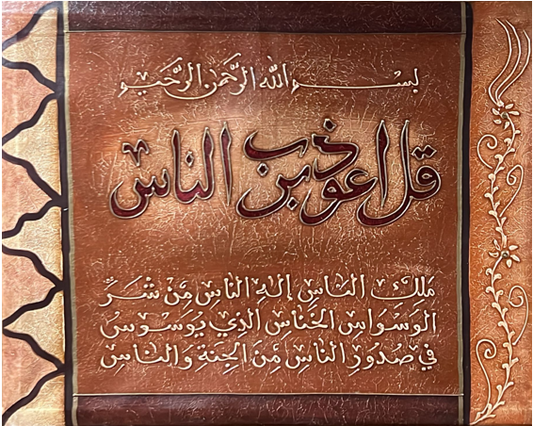 بسم الله الرحمن الرحيم
قل اعوذ برب الناس
ملك الناس إله الناس مِّن شَرِّ
الوسواس الخناس الذي يُوَسوسُ
في صُدُورِ الناس مِّنَ الجِنَّةِ وَالناس